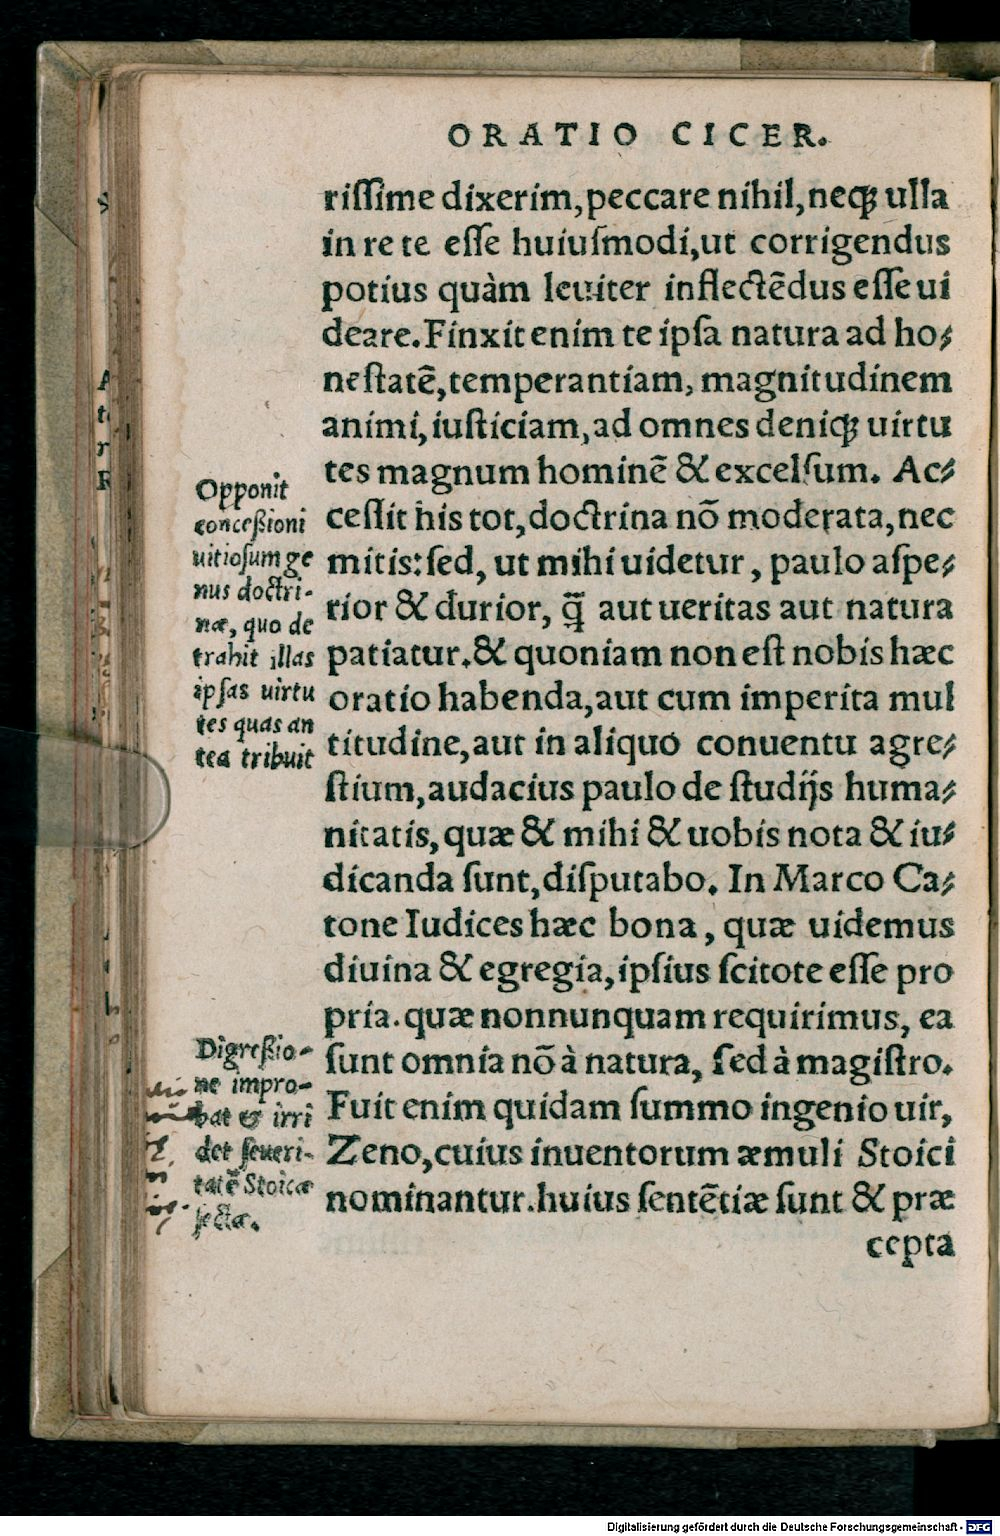 ORATIO CICER.
rissime dixerim, peccare nihil, neq; ulla
in re te esse huiusmodi, ut corrigendus
potius quàm leuiter inflectēdus esse ui
deare. Finxit enim te ipsa natura ad ho-
nestatē, temperantiam, magnitudinem
animi, iusticiam, ad omnes deniq; uirtu
tes magnum hominē & excelsum. Ac-
cessit his tot, doctrina nō moderata, nec
mitis: sed, ut mihi uidetur, paulo aspe-
rior & durior, q̃ aut ueritas aut natura
patiatur. & quoniam non est nobis hæc
oratio habenda, aut cum imperita mul
titudine, aut in aliquo conuentu agre-
stium, audacius paulo de studijs huma-
nitatis, quæ & mihi & uobis nota & iu-
dicanda sunt, disputabo. In Marco Ca-
tone Iudices hæc bona, quæ uidemus
diuina & egregia, ipsius scitote esse pro
pria. quæ nonnunquam requirimus, ea
sunt omnia nō à natura, sed à magistro.
Fuit enim quidam summo ingenio uir,
Zeno, cuius inuentorum æmuli Stoici
nominantur. huius sentētiæ sunt & præ
cepta
Opponit
concessioni
uitiosum ge
nus doctri-
næ, quo de
trahit illas
ipsas uirtu
tes quas an
tea tribuit
Digressio-
ne impro-
bat & irri
det seueri-
tatē Stoicæ
sectæ.
Digitalisierung gefördert durch die Deutsche Forschungsgemeinschaft - DFG